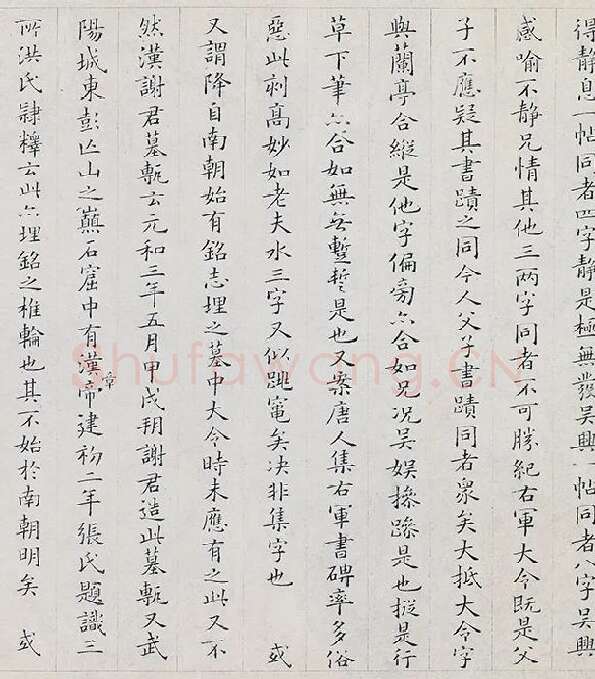 得静息一帖同者四字静是極無發吴興一帖同者八字吴興
感喻不静兄情其他三两字同者不可勝紀右軍大令既是父
子不應疑其書蹟之同今人父子書蹟同者衆矣大抵大令字
與蘭亭合縱是他字偏旁亦合如兄况吴娱摻蹤是也摐是行
草下筆亦合如無無蹔誓是也又案唐人集右軍書碑率多俗
惡此刻髙妙如老夫水三字又似跳竃矣决非集字也 或
又謂降自南朝始有銘志埋之墓中大令時未應有之此又不
然漢謝君墓甎云元和三年五月甲戌朔謝君造此墓甎又武
陽城東彭亡山之巔石窟中有漢章帝建初二年張氏題識三
所洪氏隷釋云此亦埋銘之椎輪也其不始於南朝明矣 或
Shufawang.CN